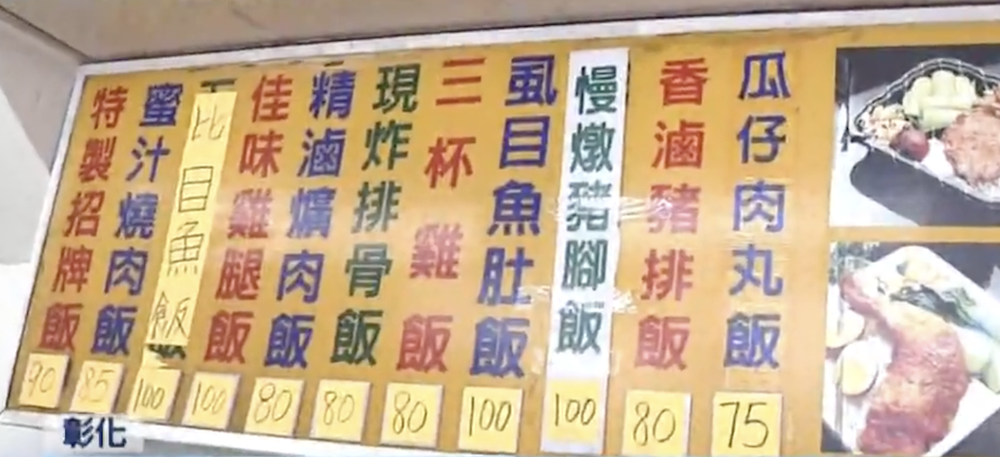 特製招牌飯
90
蜜汁燒肉飯
85
比目魚飯
100
佳味雞腿飯
100
精滷爌肉飯
80
現炸排骨飯
80
三杯雞飯
80
虱目魚肚飯
100
慢燉豬腳飯
100
香滷豬排飯
80
瓜仔肉丸飯
75
彰化